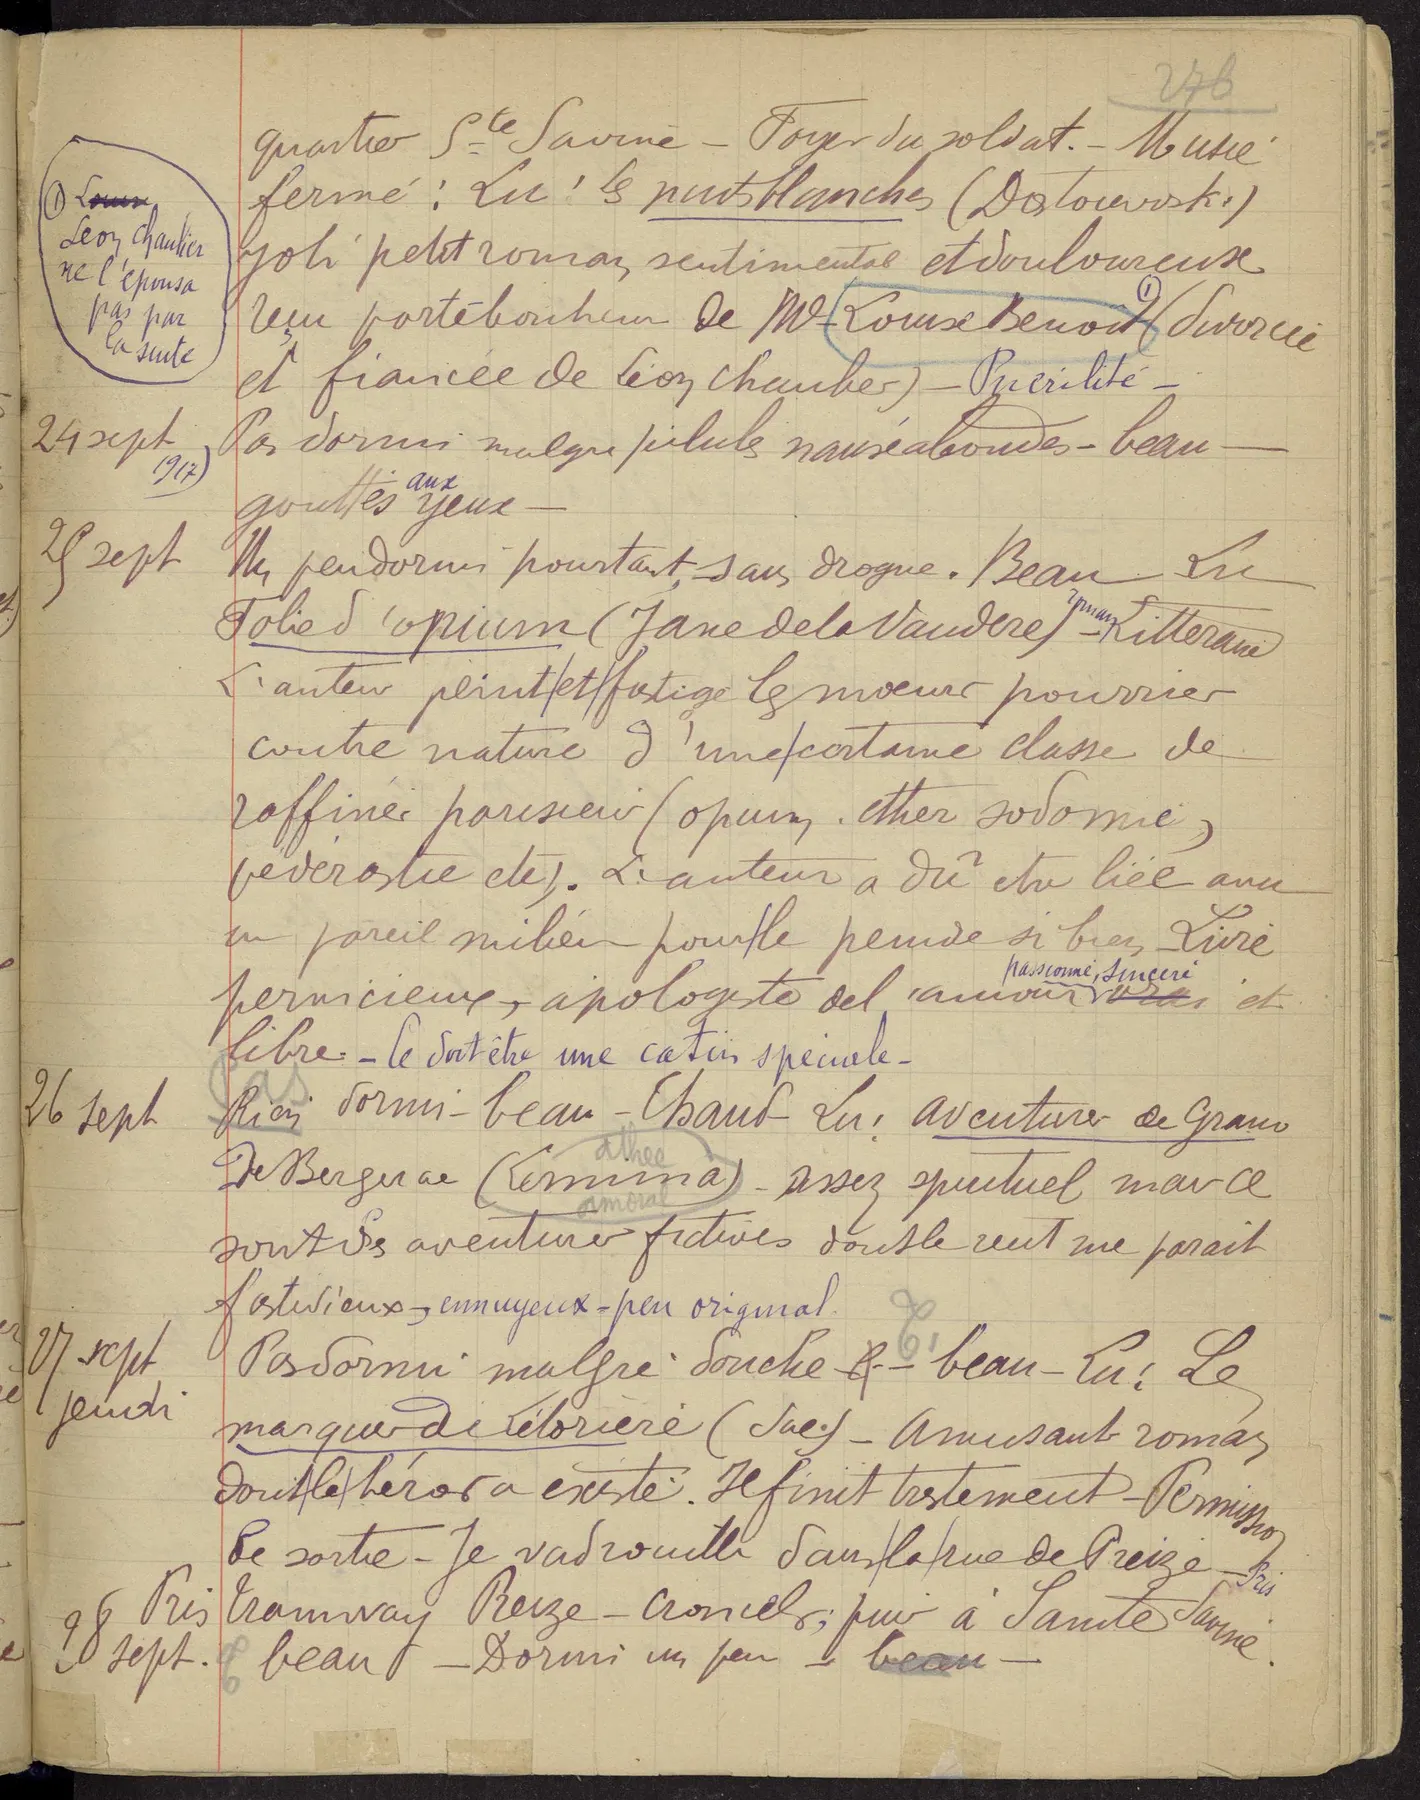 276
quartier Ste Savine – Foyer du soldat. – Musée
fermé : Lu : les nuits blanches (Dostoiewski)
joli petit roman sentimental et douloureux
reçu porte-bonheur de Me Louise Benoit (1) (divorcée
et fiancée de Léon Chaulier) – Puérilité –
(1) Louise
Léon Chaulier
ne l'épousa
pas par
la suite
24 sept 1917) Pas dormi malgré pilules nauséabondes – beau –
gouttes aux yeux –
25 sept Un peu dormi pourtant, sans drogue. Beau – Lu
Folie d'opium (Jane de la Vaudère) – roman littéraire
L'auteur peint et fustige les moeurs pourries
contre nature d'une certaine classe de
raffinés parisiens (opium, éther sodomie,
pédérastie etc). L'auteur a dû être liée avec
un pareil milieu pour le peindre si bien – Livre
pernicieux, apologiste de l'amour passionné, sincère vrai et
libre. – Ce doit être une catin spéciale –
26 sept Pas Rien dormi – beau – Chaud – Lu : aventures de Cyrano
de Bergerac (Lermina) athée amoral – assez spirituel mais ce
sont des aventures fictives dont le récit me parait
fastidieux, ennuyeux – peu original
27 sept jeudi Pas dormi malgré douche – beau – Lu : Le
marquis de Létorière (Sue) – Amusant roman
dont le héros a existé. Il finit tristement – Permission
de sortie – Je vadrouille dans la rue de Preize – Pris
Pris tramway Preize – Croncels, puis à Sainte Savine.
28 sept. beau – Dormi un peu – beau –